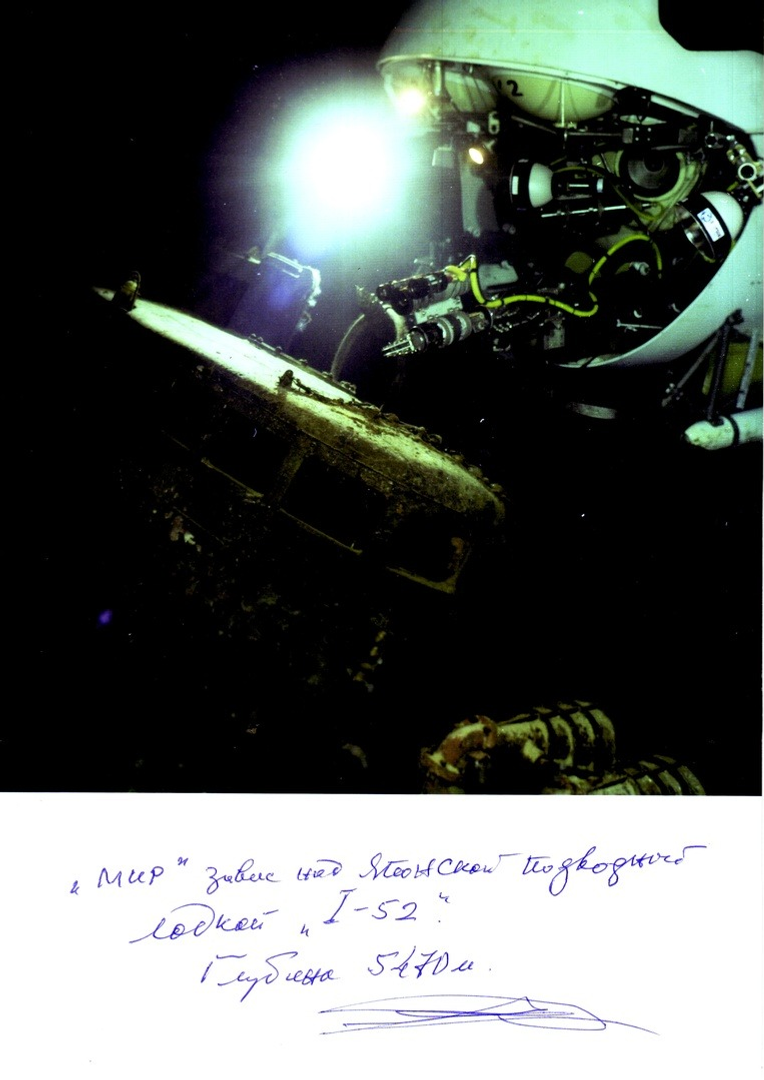 2
„МИР" завис над Японской подводной
лодкой „I-52".
Глубина 5470м.